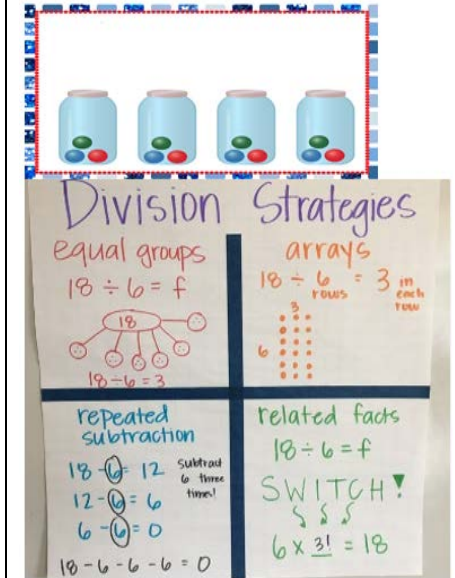 Division Strategies
equal groups
18 ÷ 6 = f
18
18 ÷ 6 = 3
arrays
18 ÷ 6 = 3 in each row
rows
3
6
repeated
subtraction
18 - 6 = 12
12 - 6 = 6
6 - 6 = 0
Subtract
6 three
times!
18 - 6 - 6 - 6 = 0
related facts
18 ÷ 6 = f
SWITCH!
6 x 3! = 18